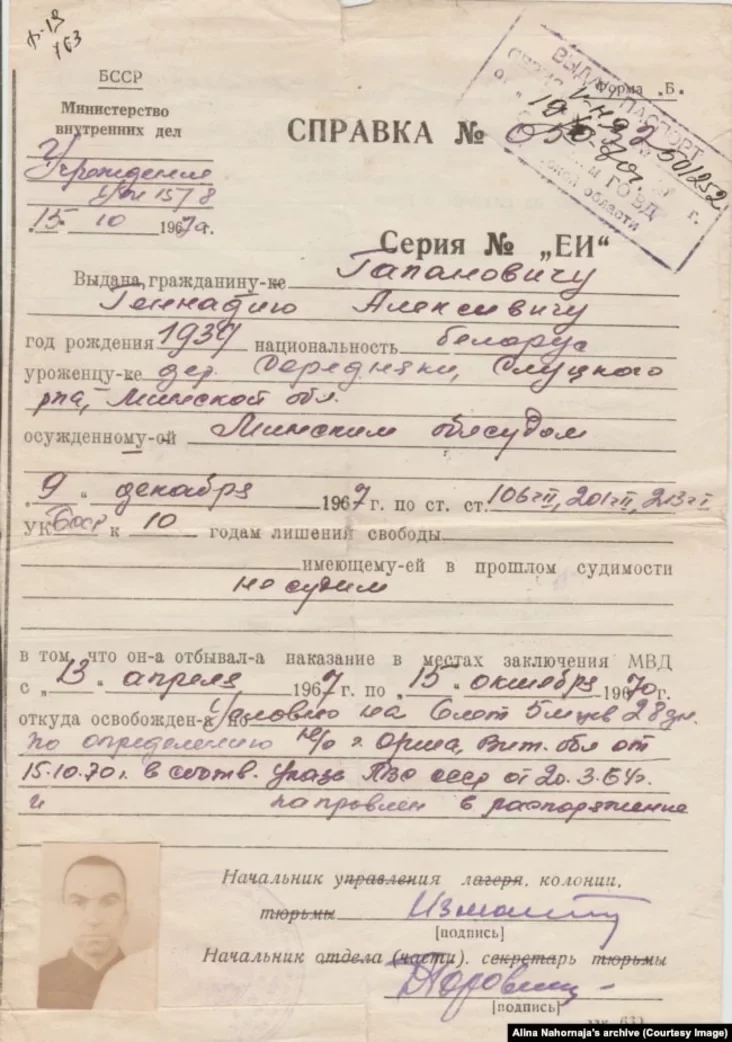 БССР
Министерство
внутренних дел
Учреждение
15/8
15. 10 1967г.
Форма „Б„
ВЫДАН ПАСПОРТ
501252
ГОВД
области
г.
СПРАВКА №
Серия № „ЕИ“
Выдана, гражданину-ке Гапановичу
Геннадию Алексеевичу
год рождения 1939 национальность белорус
уроженцу-ке дер. Середняки, Слуцкого
р-на, Минской обл.
осужденному-ой Минским облсудом
„9„ декабря 1967 г. по ст. ст. 106 ч II, 201 ч II, 213 ч I
УК БССР к 10 годам лишений свободы
имеющему-ей в прошлом судимости
не судим
в том, что он-а отбывал-а наказание в местах заключения МВД
с „13„ апреля 1967 г. по „15„ октября 19670 г.
откуда освобожден-а по Условно на 6 лет 5 м-цев 28 дн.
по определению н/с г. Орша, Вит. обл от
15.10.70г. в соотв. Указа ПВС СССР от 20.3.64г.
и направлен в распоряжение
Начальник управления лагеря, колонии,
тюрьмы
[подпись]
Начальник отдела (части), секретарь тюрьмы
[подпись]
Alina Nahornaja's archive (Courtesy Image)